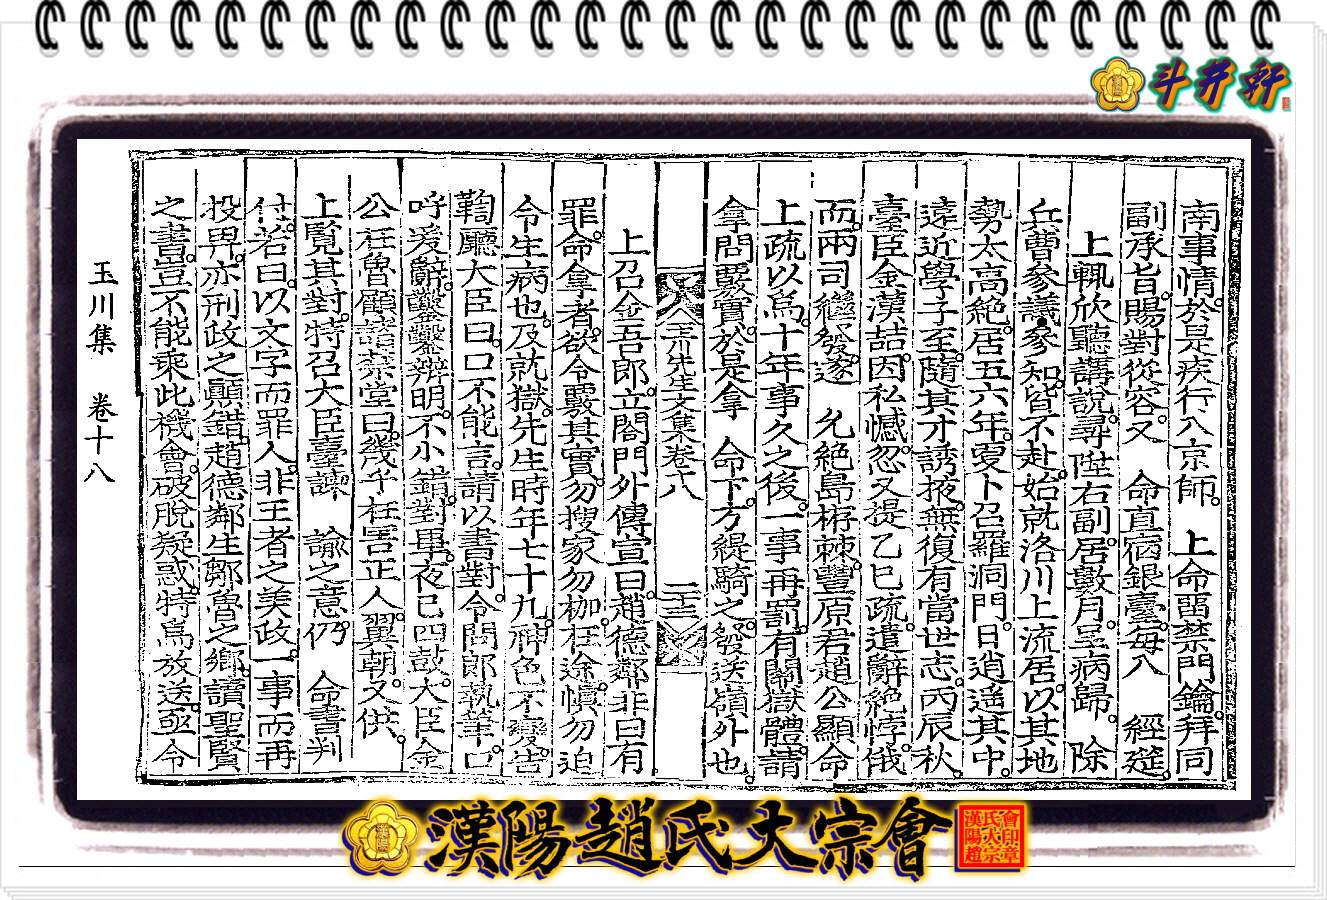 斗井軒
南事情於是疾行入京師 上命留禁門鑰拜同
副承旨賜對從容又 命直宿銀臺每入 經筵
上輒欣聽講說尋陞右副居數月呈病歸 除
兵曹參議參知皆不赴始就洛川上流居以其地
勢太高絶居五六年夏卜召羅洞門日逍遙其中
遠近學子至隨其才誘掖無復有當世志丙辰秋
臺臣金漢喆因私憾忽又提乙巳疏遣辭絶悖俄
而兩司繼發遂 允絶島栫棘豐原君趙公顯命
上疏以爲十年事久之後一事再罰有關獄體請
拿問覈實於是拿 命下方緹騎之發送嶺外也
玉川先生文集卷十八 二十三
上召金吾郎立閤門外傳宣曰趙德鄰非曰有
罪命拿者欲令覈其實勿搜家勿枷杻途愼勿迫
令生病也及就獄先生時年七十九神色不變告
鞫廳大臣曰口不能言請以書對令問郎執筆口
呼爰辭鑿鑿辨明不小錯對畢夜已四鼓大臣金
公在魯顧諸禁堂曰幾乎枉害正人翼朝又供
上覽其對特召大臣臺諫 諭之意仍 命書判
付若曰以文字而罪人非王者之美政一事而再
投畀亦刑政之顚錯趙德鄰生鄒魯之鄕讀聖賢
之書豈不能乘此機會破脫疑惑特爲放送亟令
玉川集 卷十八
漢陽趙氏大宗會
漢陽趙氏大宗會印章